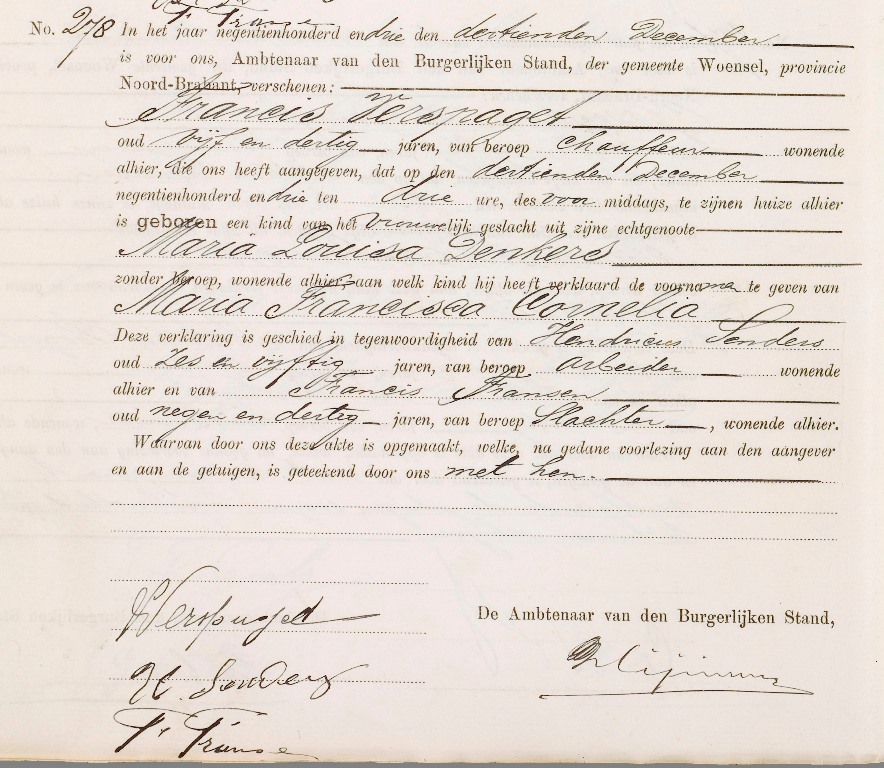 F. Franse
No. 278 In het jaar negentienhonderd en drie den dertienden December
is voor ons, Ambtenaar van den Burgerlijken Stand, der gemeente Woensel, provincie
Noord-Brabant, verschenen:
Francis Verspaget
oud vijf en dertig jaren, van beroep chauffeur wonende
alhier, die ons heeft aangegeven, dat op den dertienden December
negentienhonderd en drie ten drie ure, des voor middags, te zijnen huize alhier
is geboren een kind van het vrouwelijk geslacht uit zijne echtgenoote
Maria Louisa Denkers
zonder beroep, wonende alhier, aan welk kind hij heeft verklaard de voorname te geven van
Maria Francisca Cornelia
Deze verklaring is geschied in tegenwoordigheid van Hendricus Senders
oud zes en vijftig jaren, van beroep arbeider wonende
alhier en van Francis Fransen
oud negen en dertig jaren, van beroep Slachter, wonende alhier.
Waarvan door ons deze akte is opgemaakt, welke, na gedane voorlezing aan den aangever
en aan de getuigen, is geteekend door ons met hen.
Verspaget
De Ambtenaar van den Burgerlijken Stand,
H. Senders
F. Franse